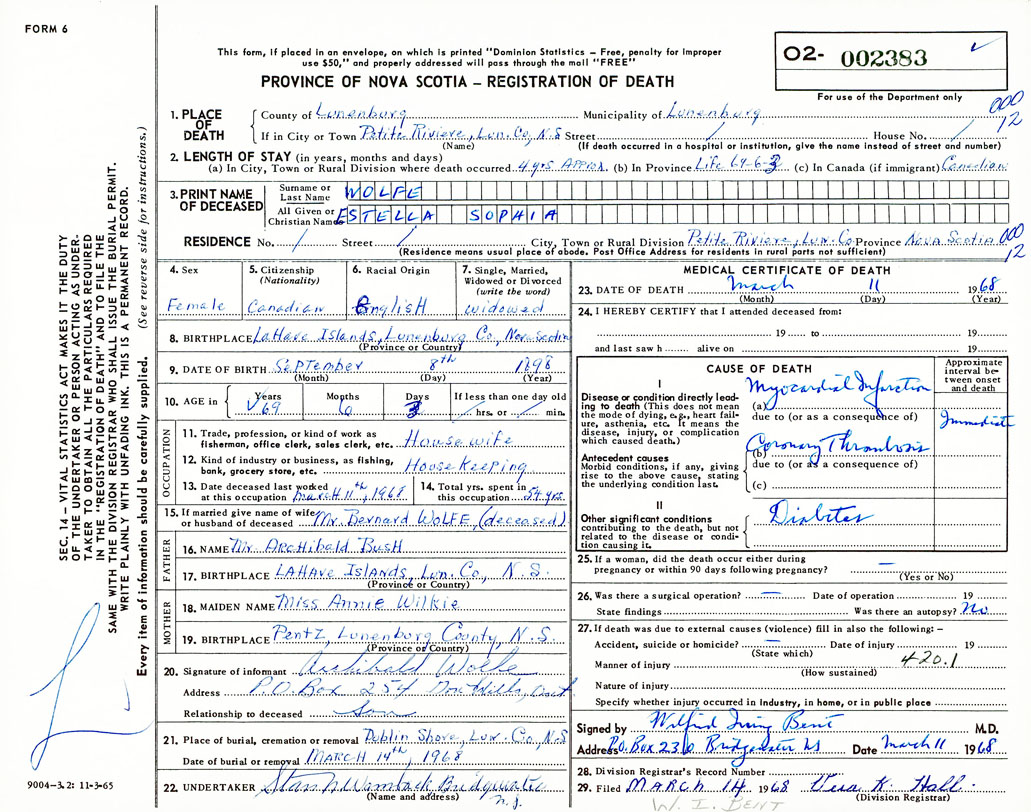 FORM 6
This form, if placed in an envelope, on which is printed "Dominion Statistics – Free, penalty for improper
use $50," and properly addressed will pass through the mail "FREE"
PROVINCE OF NOVA SCOTIA – REGISTRATION OF DEATH
O2- 002383
For use of the Department only
000
12
1. PLACE OF DEATH
County of Lunenburg Municipality of Lunenburg
If in City or Town Petite Riviere, Lun. Co, N.S Street / House No. /
(Name) (If death occurred in a hospital or institution, give the name instead of street and number)
2. LENGTH OF STAY (in years, months and days)
(a) In City, Town or Rural Division where death occurred 4 yrs Approx. (b) In Province Life 69-6-3 (c) In Canada (if immigrant) Canadian
3. PRINT NAME OF DECEASED
Surname or Last Name WOLFE
All Given or Christian Names ESTELLA SOPHIA
RESIDENCE No. / Street / City, Town or Rural Division Petite Riviere, Lun. Co Province Nova Scotia
000
12
(Residence means usual place of abode. Post Office Address for residents in rural parts not sufficient)
4. Sex
Female
5. Citizenship (Nationality)
Canadian
6. Racial Origin
EnglisH
7. Single, Married, Widowed or Divorced (write the word)
widowed
8. BIRTHPLACE LaHave Islands, Lunenburg Co, Nova Scotia
(Province or Country)
9. DATE OF BIRTH September 8th 1898
(Month) (Day) (Year)
10. AGE in Years 69 Months 6 Days 3 If less than one day old / hrs. or / min.
OCCUPATION
11. Trade, profession, or kind of work as
fisherman, office clerk, sales clerk, etc. Housewife
12. Kind of industry or business, as fishing,
bank, grocery store, etc. HouseKeeping
13. Date deceased last worked
at this occupation march 11th, 1968
14. Total yrs. spent in
this occupation 54 yrs
15. If married give name of wife
or husband of deceased Mr. Bernard WOLFE, (deceased)
FATHER
16. NAME Mr. ArcHibald BusH
17. BIRTHPLACE LAHave Islands, Lun. Co, N.S.
(Province or Country)
MOTHER
18. MAIDEN NAME Miss Annie Wilkie
19. BIRTHPLACE Pentz, Lunenburg County, N.S.
(Province or Country)
20. Signature of informant Archibald Wolfe
Address P.O. Box 254 Don Mills, Ont
Relationship to deceased Son
21. Place of burial, cremation or removal Dublin Shore, Lun. Co, N.S
Date of burial or removal MARCH 14th, 1968
22. UNDERTAKER Bridgewater
(Name and address)
MEDICAL CERTIFICATE OF DEATH
23. DATE OF DEATH March 11 1968
(Month) (Day) (Year)
24. I HEREBY CERTIFY that I attended deceased from:
19 to 19
and last saw h alive on 19
CAUSE OF DEATH
Approximate interval between onset and death
I
Disease or condition directly leading to death (This does not mean the mode of dying, e.g., heart failure, asthenia, etc. It means the disease, injury, or complication which caused death.)
(a) Myocardial Infarction
due to (or as a consequence of)
Immediate
Antecedent causes
Morbid conditions, if any, giving rise to the above cause, stating the underlying condition last.
(b) Coronary Thrombosis
due to (or as a consequence of)
(c)
II
Other significant conditions contributing to the death, but not related to the disease or condition causing it.
Diabetes
25. If a woman, did the death occur either during
pregnancy or within 90 days following pregnancy? —
(Yes or No)
26. Was there a surgical operation? — Date of operation 19
State findings Was there an autopsy? No
27. If death was due to external causes (violence) fill in also the following: –
Accident, suicide or homicide? — Date of injury 19
(State which)
Manner of injury 420.1
(How sustained)
Nature of injury
Specify whether injury occurred in industry, in home, or in public place
Signed by Wilfrid Irving Bent M.D.
Address P.O. Box 230 Bridgewater NS Date March 11 1968
28. Division Registrar's Record Number
29. Filed MARCH 14 1968 Vera K. Hall
(Division Registrar)
W. I. BENT
SEC. 14 – VITAL STATISTICS ACT MAKES IT THE DUTY
OF THE UNDERTAKER OR PERSON ACTING AS UNDER-
TAKER TO OBTAIN ALL THE PARTICULARS REQUIRED
IN THE "REGISTRATION OF DEATH" AND TO FILE THE
SAME WITH THE DIVISION REGISTRAR WHO SHALL ISSUE THE BURIAL PERMIT.
WRITE PLAINLY WITH UNFADING INK. THIS IS A PERMANENT RECORD.
Every item of information should be carefully supplied. (See reverse side for instructions.)
9004-3.2: 11-3-65